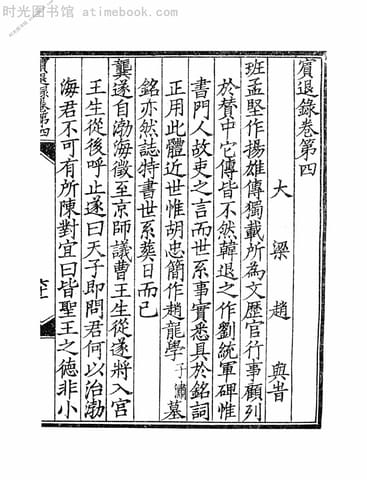 时光图书馆 atimebook.com
賔退錄卷第四
大梁趙與旹
班孟堅作揚雄傳獨載所為文歷官行事顧列
於贊中它傳皆不然韓退之作劉統軍碑惟
書門人故吏之言而世系事實悉具於銘詞
正用此體近世惟胡忠簡作趙龍學子潚墓
銘亦然誌特書世系葬日而已
龔遂自渤海徵至京師議曹王生從遂將入宮
王生從後呼止遂曰天子即問君何以治渤
海君不可有所陳對宜曰皆聖王之德非小
賔退錄卷第四